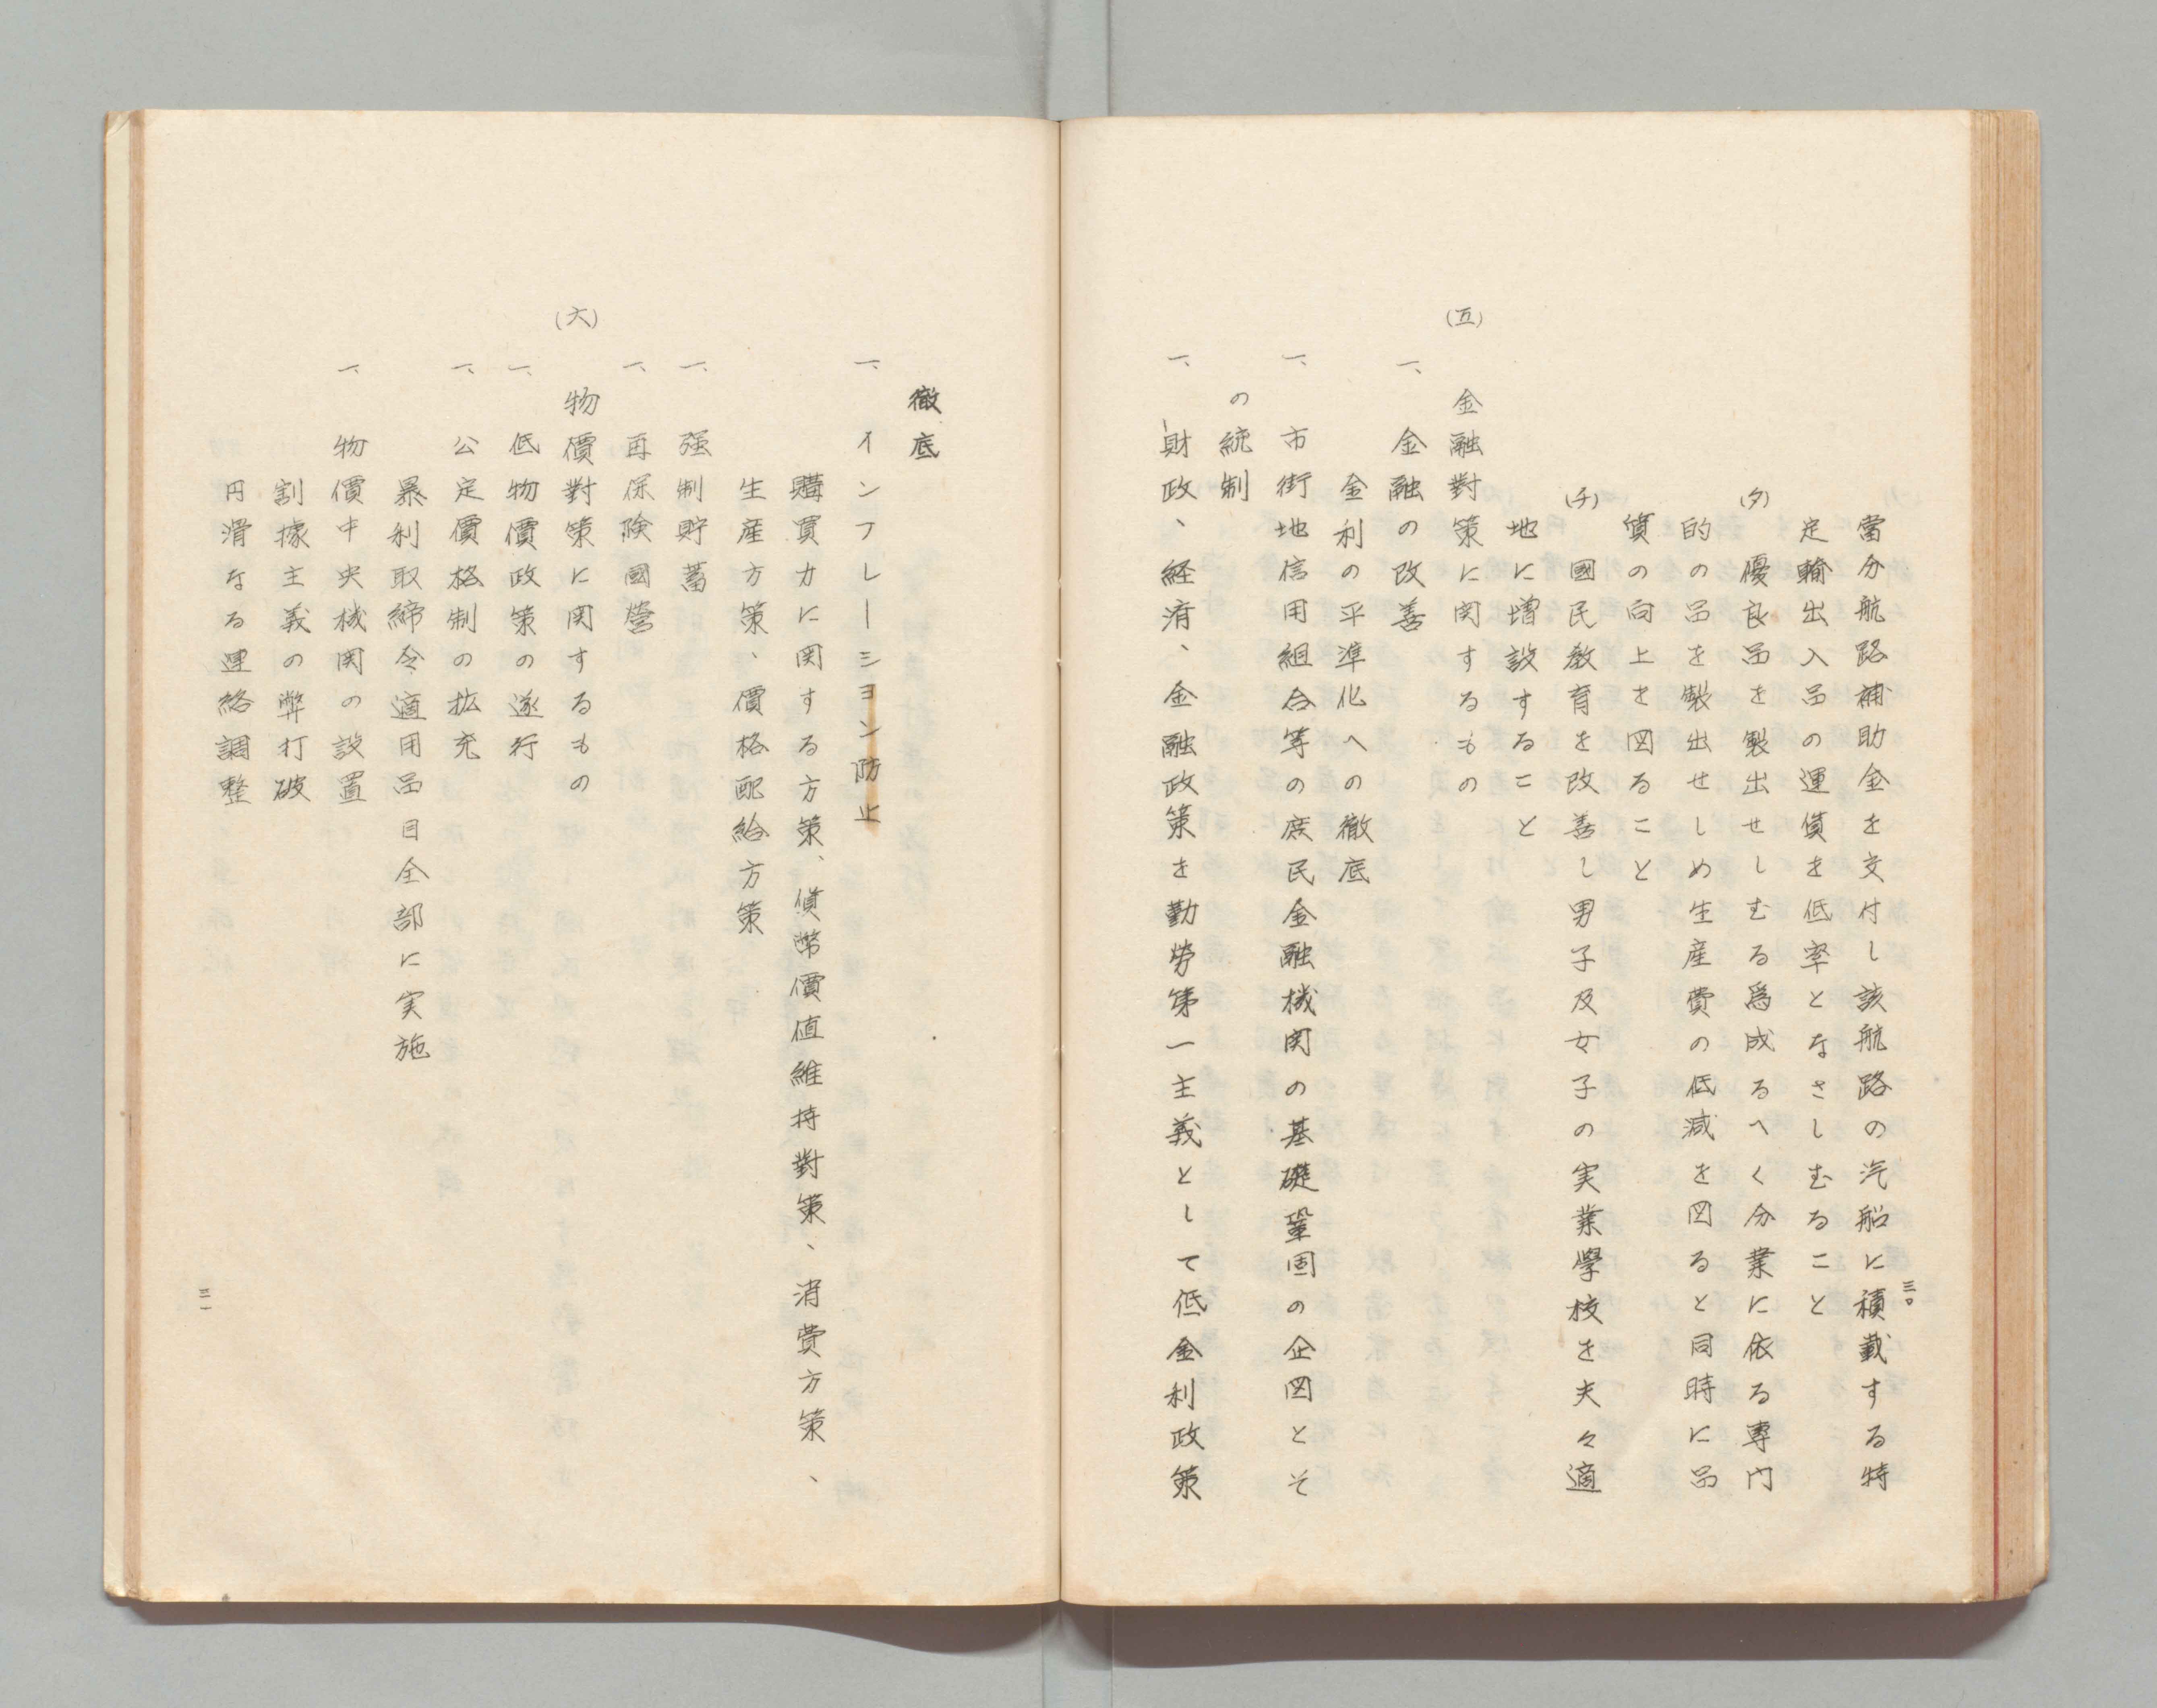 當分航路補助金を交付し該航路の汽船に積載する特
定輸出入品の運賃を低率となさしむること
(タ) 優良品を製出せしむる爲成るへく分業に依る専門
的の品を製出せしめ生産費の低減を図ると同時に品
質の向上を図ること
(チ) 國民教育を改善し男子及女子の実業學校を夫々適
地に增設すること
(五) 金融對策に関するもの
一、金融の改善
金利の平準化への徹底
一、市街地信用組合等の庶民金融機関の基礎鞏固の企図とそ
の統制
一、財政、経済、金融政策を勤労第一主義として低金利政策
三〇
徹底
一、インフレーション防止
購買力に関する方策、貨幣價値維持對策、消費方策、
生産方策、價格配給方策
一、强制貯蓄
一、再保険國營
(六) 物價對策に関するもの
一、低物價政策の遂行
一、公定價格制の拡充
暴利取締令適用品目全部に実施
一、物價中央機関の設置
割據主義の弊打破
円滑なる連絡調整
三一